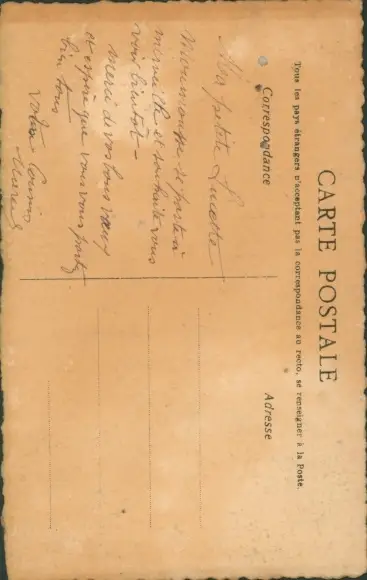 CARTE POSTALE
Tous les pays étrangers n'acceptent pas la correspondance au recto, se renseigner à la Poste.
Correspondance
Adresse
Ma petite
se porte à
merveille et souhaite vous
voir bientôt –
Merci de vos bons vœux
et espère que vous vous portez
bien tous
Votre Cousin